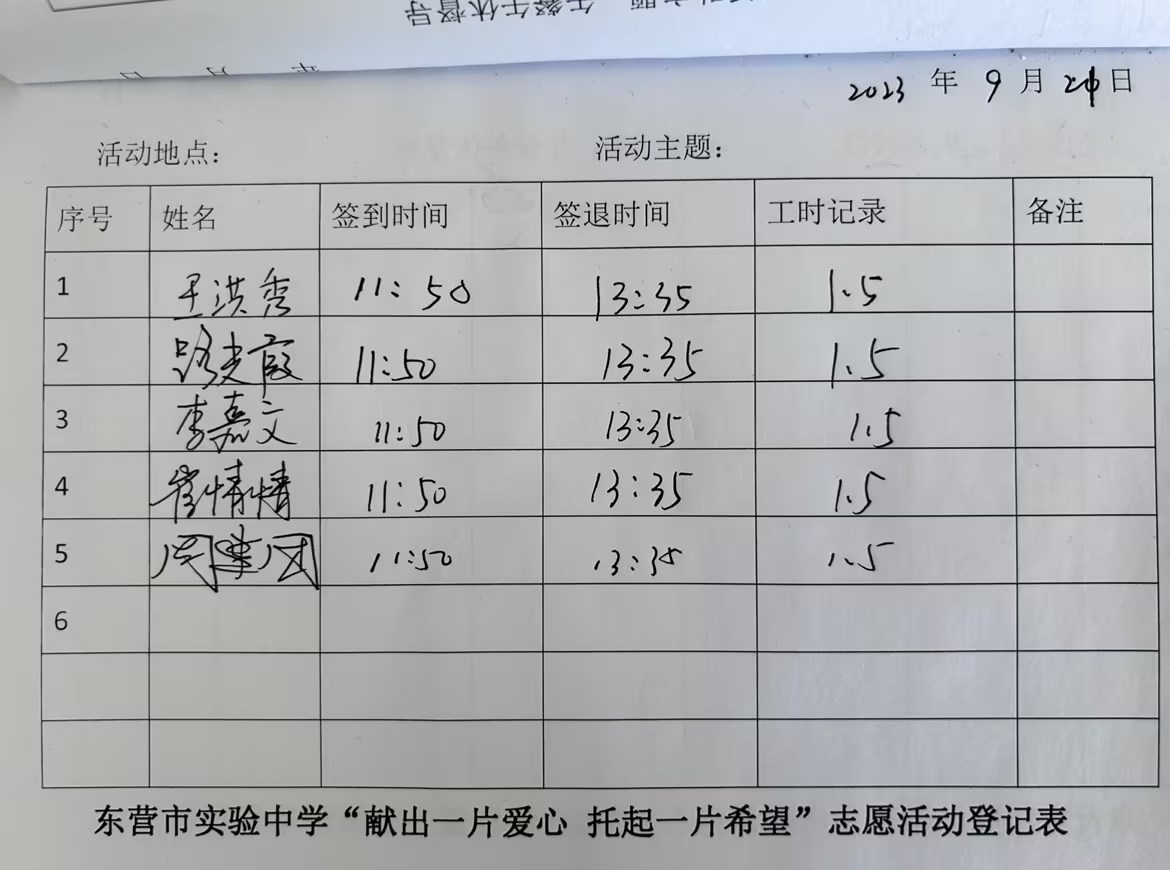 午餐午休督导
年 月 日
2023 年 9 月 日
活动地点： 活动主题：
序号 姓名 签到时间 签退时间 工时记录 备注
1 王洪秀 11:50 13:35 1.5
2 11:50 13:35 1.5
3 李嘉文 11:50 13:35 1.5
4 崔情情 11:50 13:35 1.5
5 11:50 13:35 1.5
6
东营市实验中学“献出一片爱心 托起一片希望”志愿活动登记表